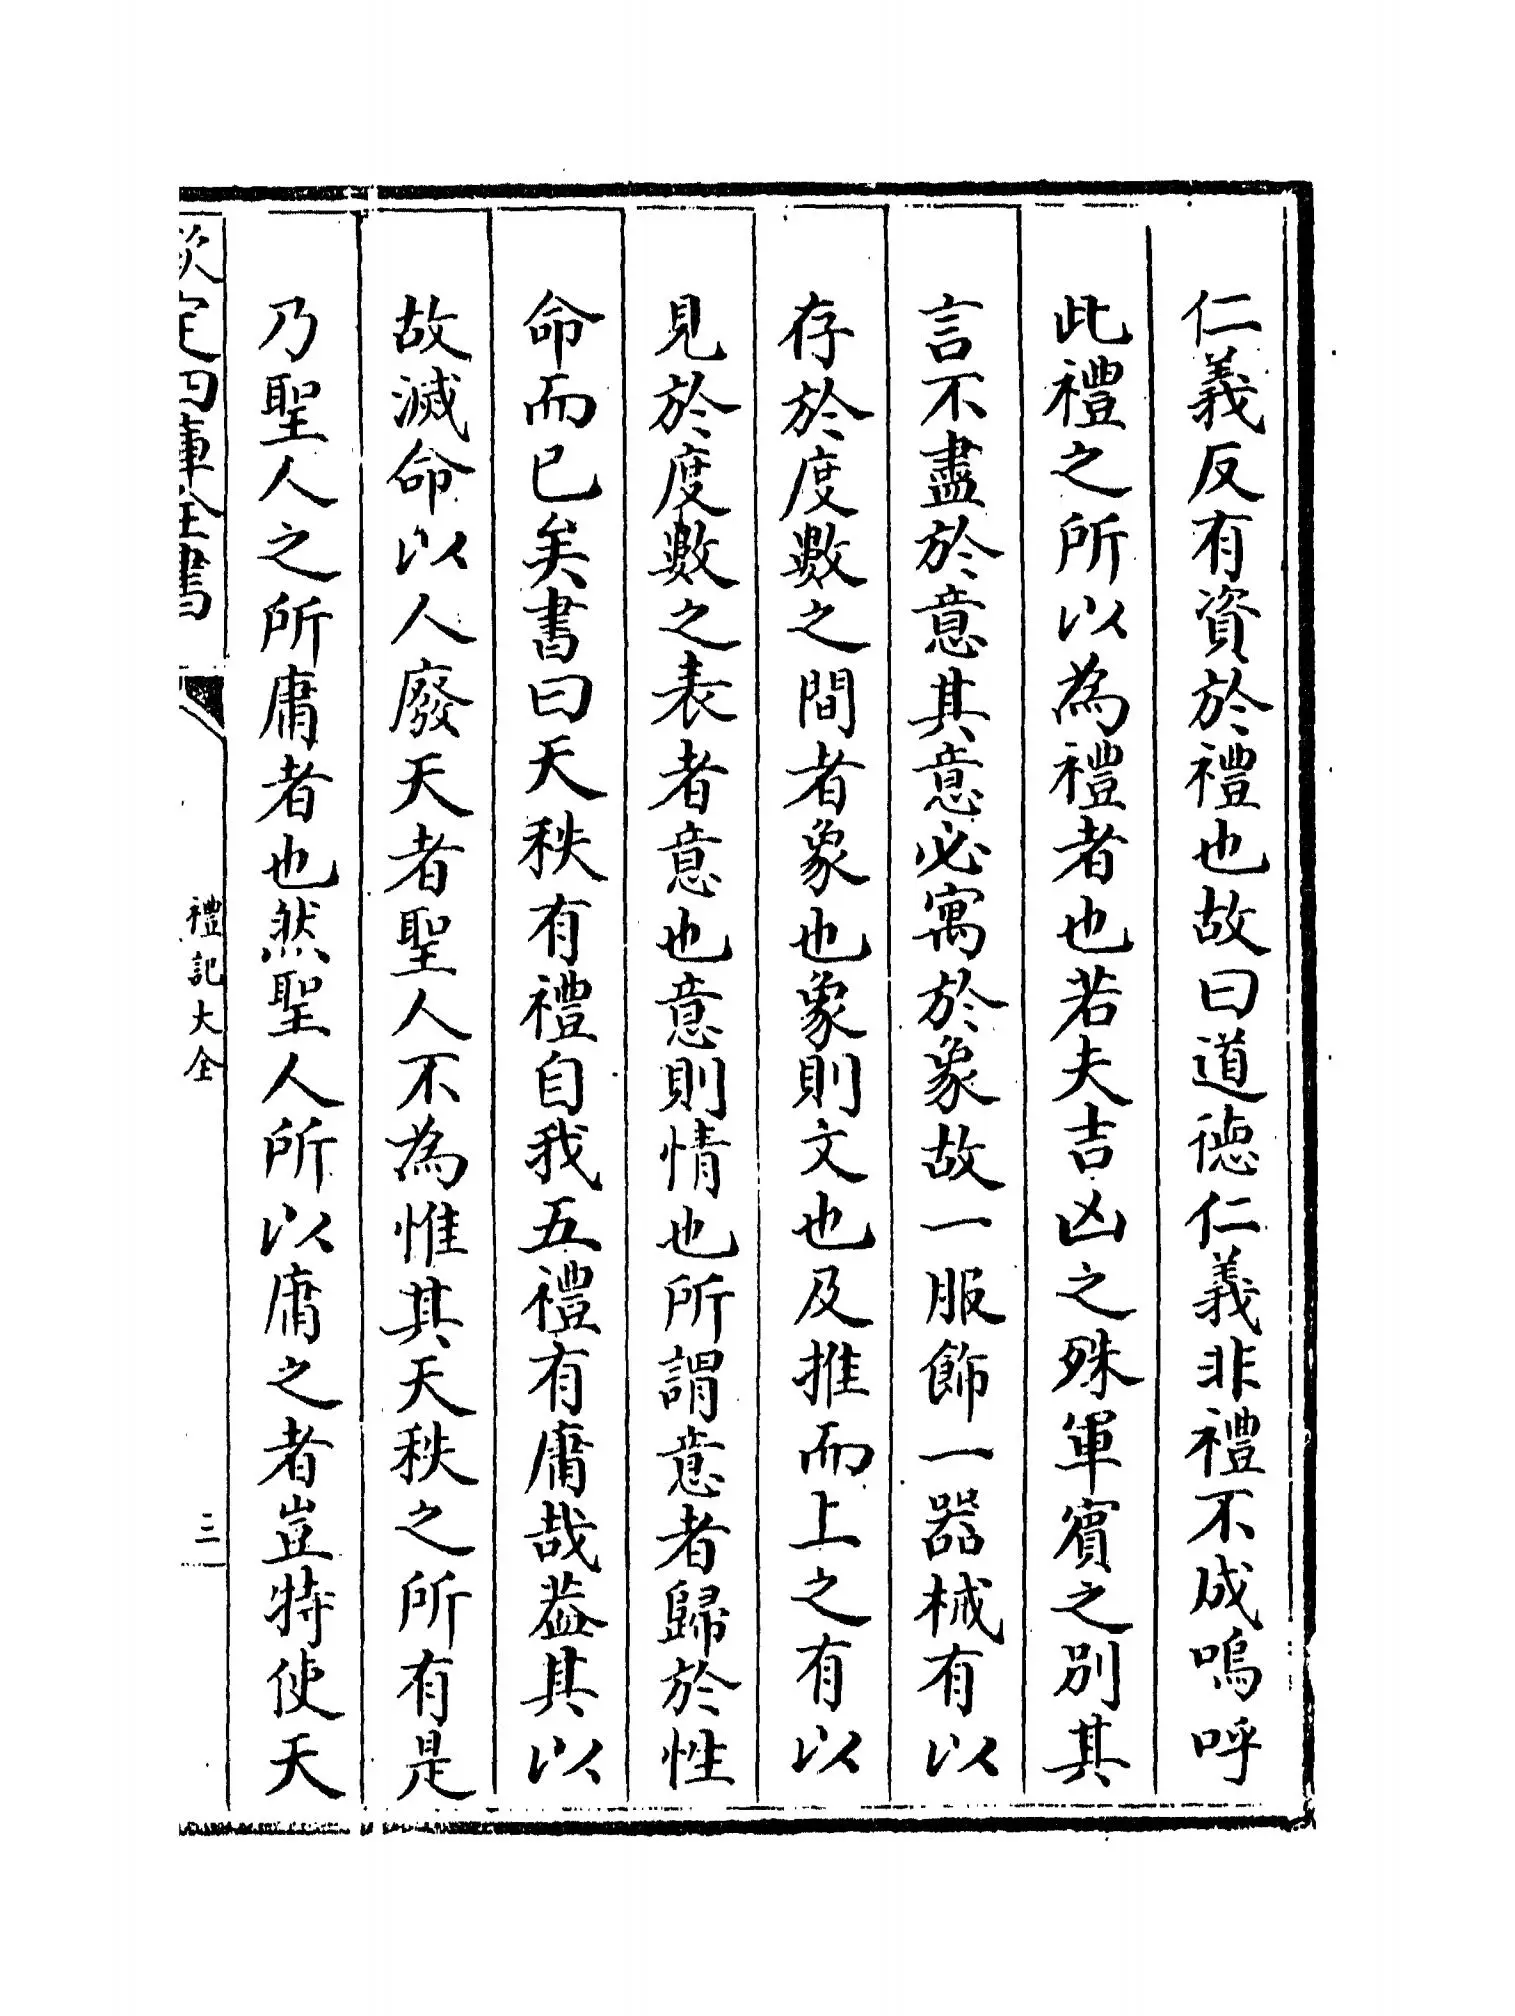 仁義反有資於禮也故曰道德仁義非禮不成嗚呼
此禮之所以為禮者也若夫吉凶之殊軍賓之別其
言不盡於意其意必寓於象故一服飾一器械有以
存於度數之間者象也象則文也及推而上之有以
見於度數之表者意也意則情也所謂意者歸於性
命而已矣書曰天秩有禮自我五禮有庸哉葢其以
故滅命以人廢天者聖人不為惟其天秩之所有是
乃聖人之所庸者也然聖人所以庸之者豈特使天
欽定四庫全書
禮記大全
三